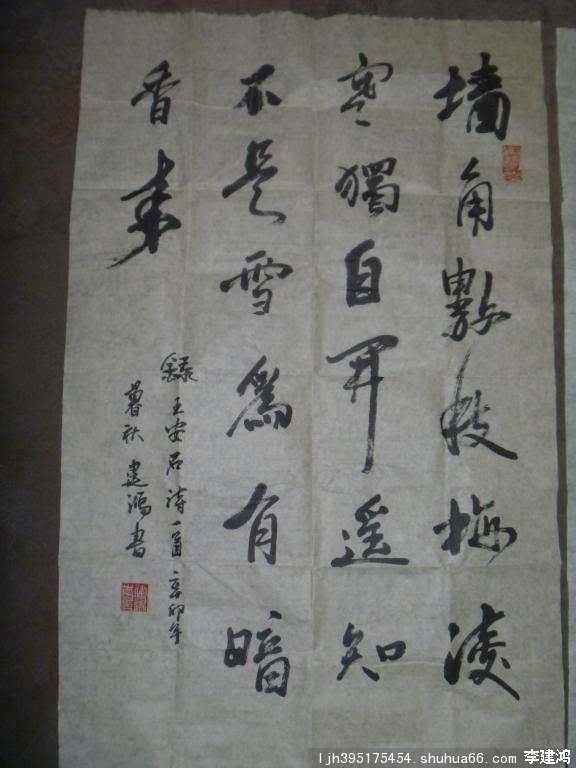 墙角數枝梅凌
寒獨自開遥知
不是雪為有暗
香來
錄王安石詩一首辛卯年
暮秋建鴻書
ljh395175454. shuhua66. com 李建鸿